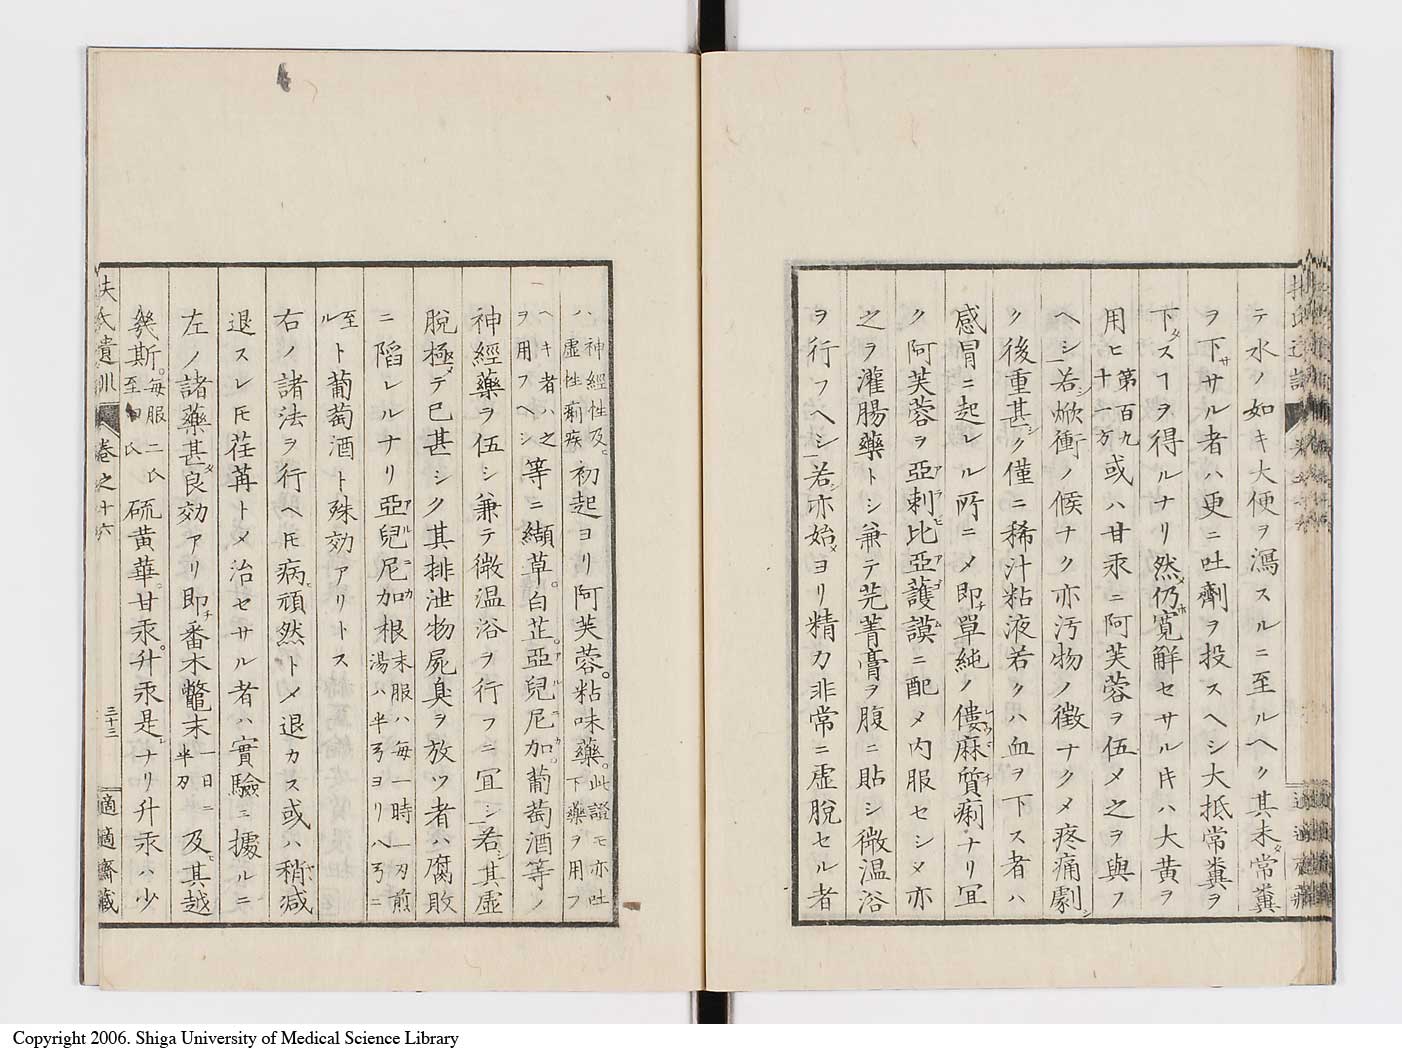 テ水ノ如キ大便ヲ瀉スルニ至ルヘク其未タ常糞
ヲ下ササル者ハ更ニ吐劑ヲ投スヘシ大抵常糞ヲ
下タスヿヲ得ルナリ然メ仍ホ寛解セサル片ハ大黄ヲ
用ヒ第百九十一方或ハ甘汞ニ阿芙蓉ヲ伍メ之ヲ與フ
ヘシ若シ焮衝ノ候ナク亦汚物ノ徴ナクメ疼痛劇シ
ク後重甚シク僅ニ稀汁粘液若クハ血ヲ下ス者ハ
感冒ニ起レル所ニメ即チ單純ノ僂麻質痢ナリ宜
ク阿芙蓉ヲ亞剌比亞護謨ニ配メ内服セシメ亦
之ヲ灌腸藥トシ兼テ芫菁膏ヲ腹ニ貼シ微温浴
ヲ行フヘシ若シ亦始メヨリ精力非常ニ虚脱セル者
ハ神經性及ヒ虚性痢疾初起ヨリ阿芙蓉粘味藥此證モ亦吐下藥ヲ用フ
ヘキ者ハ之ヲ用フヘシ等ニ纈草白芷亞兒尼加葡萄酒等ノ
神經藥ヲ伍シ兼テ微温浴ヲ行フニ宜シ若シ其虚
脱極メテ已甚シク其排泄物屍臭ヲ放ツ者ハ腐敗
ニ陷レルナリ亞兒尼加根末服ハ毎一時一刄煎湯ハ半弓ヨリ八弓ニ
至ルト葡萄酒ト殊効アリトス
右ノ諸法ヲ行ヘ𪜈病頑然トメ退カス或ハ稍減
退スレ𪜈荏苒トメ治セサル者ハ實驗ニ據ルニ
左ノ諸藥甚タ良効アリ即チ番木鼈末一日ニ半刄及ヒ其越
幾斯毎服二氏至四氏硫黄華甘汞升汞是レナリ升汞ハ少
扶氏遺訓 卷之十六 三十三 適適齋藏